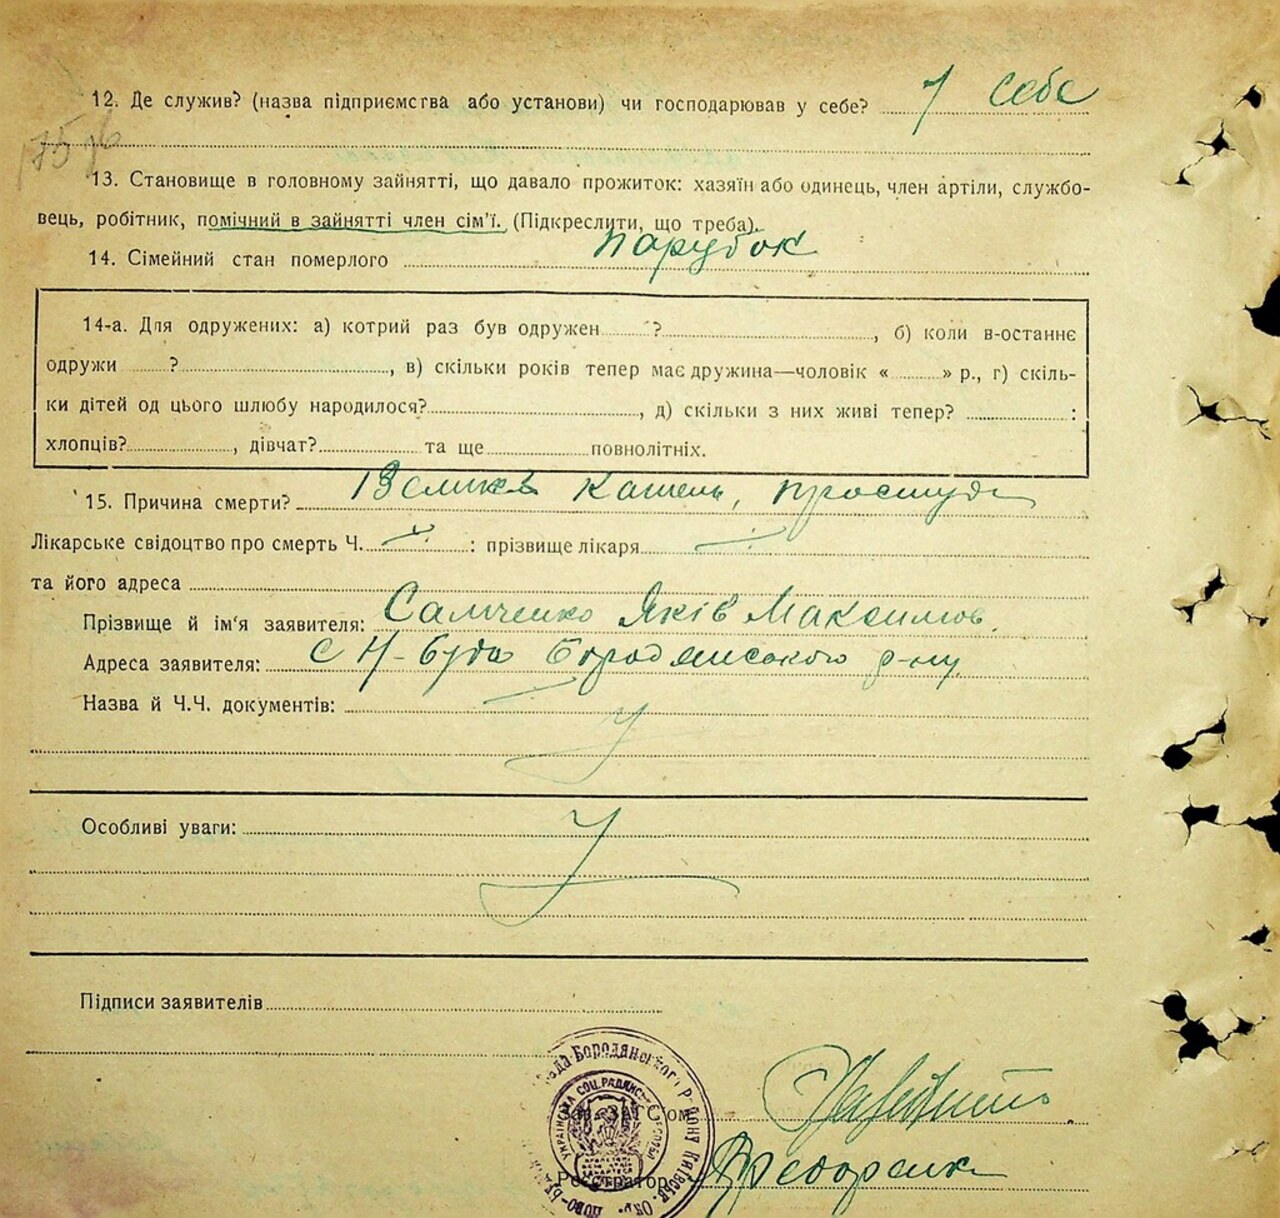 12. Де служив? (назва підприємства або установи) чи господарював у себе? У себе
13. Становище в головному зайнятті, що давало прожиток: хазяїн або одинець, член артілі, службо-
вець, робітник, помічний в зайнятті член сім'ї. (Підкреслити, що треба).
14. Сімейний стан померлого парубок
14-а. Для одружених: а) котрий раз був одружен ?, б) коли в-останнє
одружи ?, в) скільки років тепер має дружина—чоловік « » р., г) скіль-
ки дітей од цього шлюбу народилося?, д) скільки з них живі тепер? :
хлопців?, дівчат? та ще повнолітніх.
15. Причина смерти? кашель, простуда
Лікарське свідоцтво про смерть Ч. : прізвище лікаря
та його адреса
Прізвище й ім'я заявителя: Яків Максимов.
Адреса заявителя: с Н-Буда Бородянського р-ну
Назва й Ч.Ч. документів:
Особливі уваги:
Підписи заявителів
Бородянського Району Київськ.
УКРАЇНСЬКА СОЦ. РАДЯНСЬК
Реєстратор